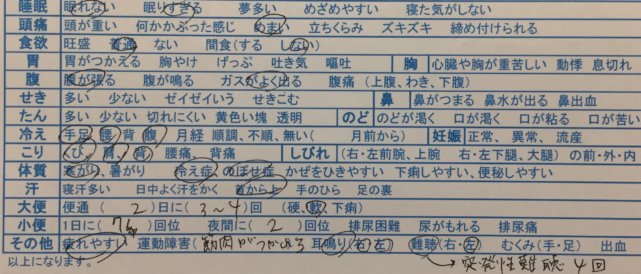 睡眠 眠れない 眠りすぎる 夢多い めざめやすい 寝た気がしない
頭痛 頭が重い 何かかぶった感じ めまい 立ちくらみ ズキズキ 締め付けられる
食欲 旺盛 普通 ない 間食(する しない)
胃 胃がつかえる 胸やけ げっぷ 吐き気 嘔吐 胸 心臓や胸が重苦しい 動悸 息切れ
腹 腹が張る 腹が鳴る ガスがよく出る 腹痛 (上腹、わき、下腹)
せき 多い 少ない ゼイゼイいう せきこむ 鼻 鼻がつまる 鼻水が出る 鼻出血
たん 多い 少ない 切れにくい 黄色い塊 透明 のど のどが渇く 口が渇く 口が粘る 口が苦い
冷え 手足 腰 背 腹 月経 順調、不順、無い( 月前から) 妊娠 正常、異常、流産
こり くび、肩、背、腰痛、背痛 しびれ (右・左前腕、上腕 右・左下腿、大腿) の前・外・内
体質 寒がり、暑がり 冷え症、のぼせ症、かぜをひきやすい 下痢しやすい、便秘しやすい
汗 寝汗多い 日中よく汗をかく 首から上 手のひら 足の裏
大便 便通 ( 2 )日に( 3~4 )回 (硬、軟、下痢)
小便 1日に( 7 )回位 夜間に( 2 )回位 排尿困難 尿がもれる 排尿痛
その他 疲れやすい 運動障害( 筋肉がつかれる 耳鳴り(右・左) 難聴(右・左) むくみ(手・足) 出血
以上になります。 → 突発性難聴 4回